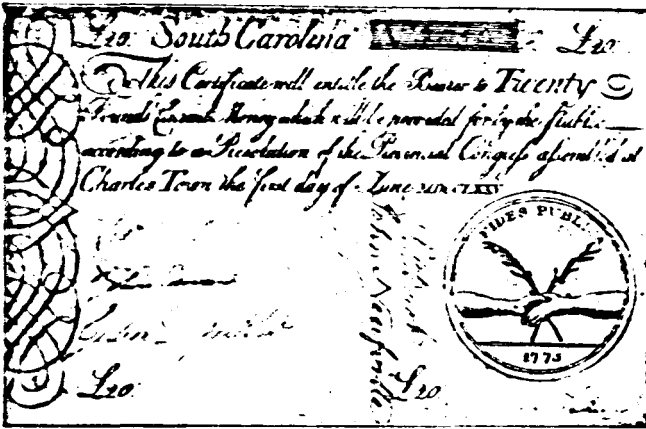 £20. South Carolina £20.
This Certificate will entitle the Bearer to Twenty
Pounds Current Money which will be provided for by the Public
according to a Resolution of the Provincial Congress assembled at
Charles Town the first day of June MDCCLXXV
FIDES PUBLI
1775
John Neufville
£20 £20